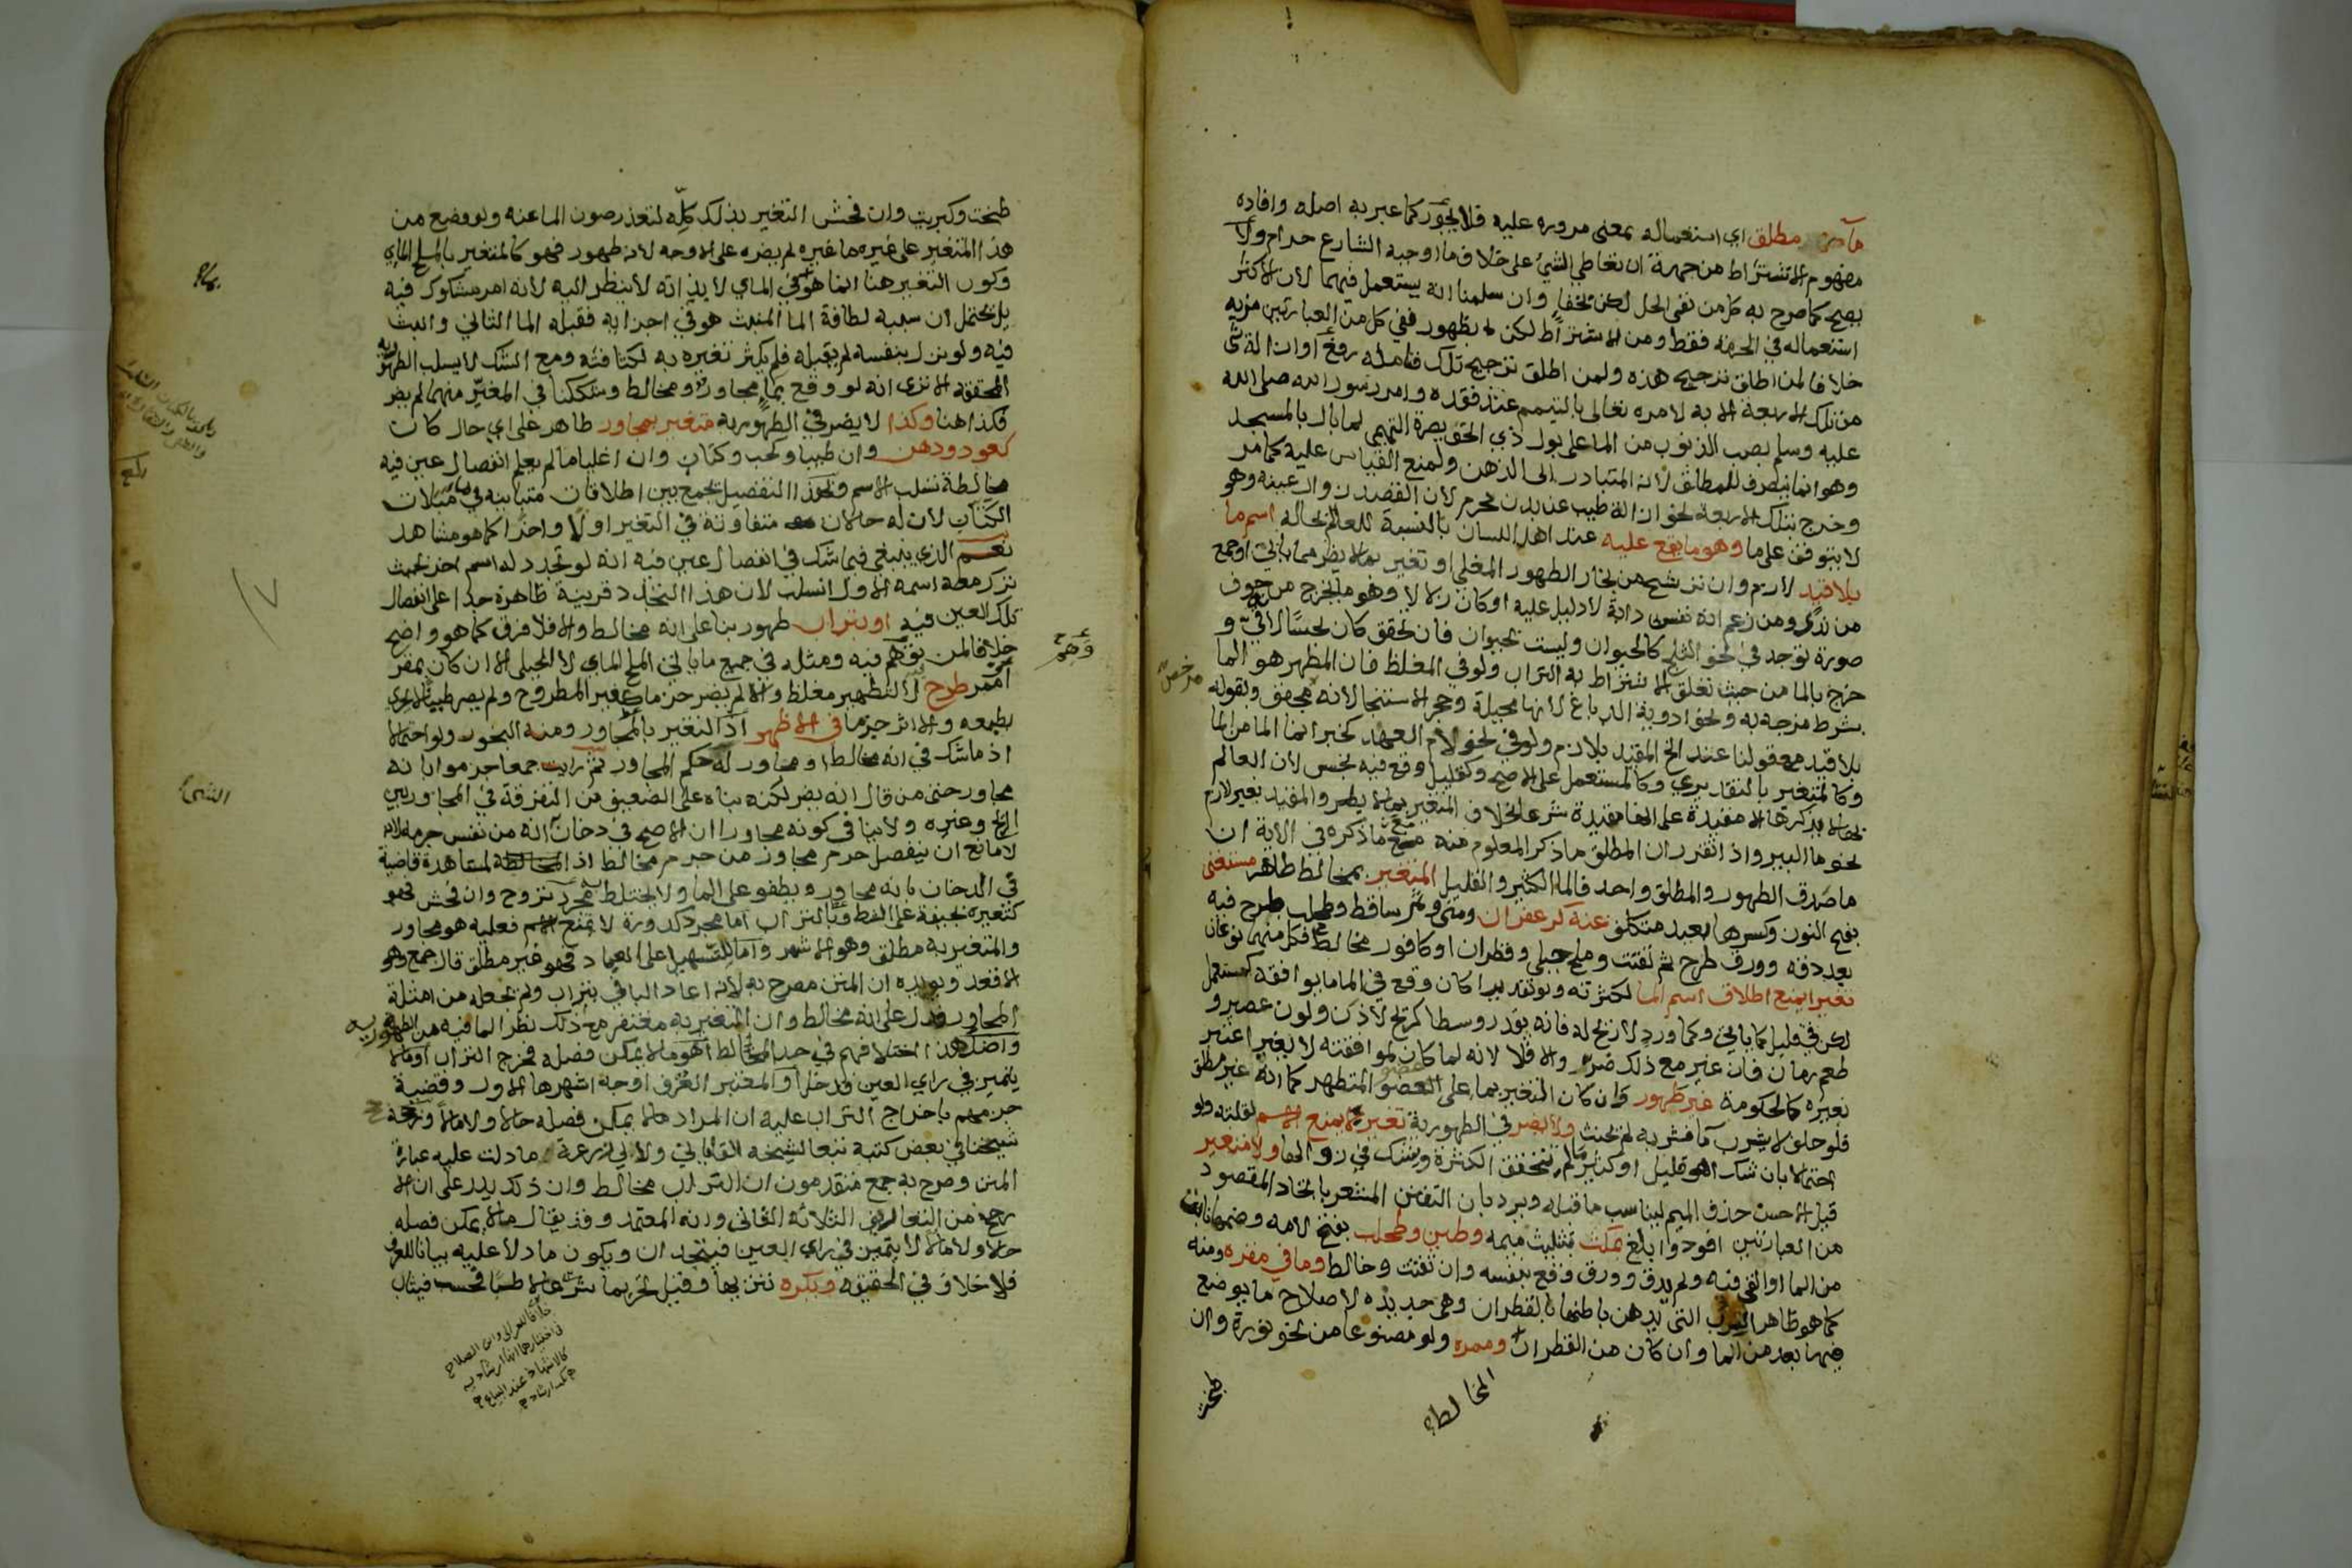 ماء مطلق اي استعماله بمعنى مروره عليه فلا يجوز كما عبر به اصله وافاده
مفهوم الاشتراط من جهة ان تعاطي الشيء على خلاف ما اوجبه الشارع حرام ولا
يصح كما صرح به كل من نفى الحل لكن بخفاء وان سلمنا انه يستعمل فيهما لان الاكثر
استعماله في الحرمة فقط ومن الاشتراط لكن لا بظهور ففي كل من العبارتين مزية
خلافا لمن اطلق ترجيح هذه ولمن اطلق ترجيح تلك فتامله رفع او ازالة شيء
من تلك الاربعة الا به لامره تعالى بالتيمم عند فقده وامر رسول الله صلى الله
عليه وسلم بصب الذنوب من الما على بول ذي الخويصرة التميمي لما بال بالمسجد
وهو انما ينصرف للمطلق لانه المتبادر الى الذهن ولمنع القياس عليه كما مر
وخرج بتلك الاربعة نحو ازالة طيب عن بدن محرم لان القصد زوال عينه وهو
لا يتوقف على ما وهو ما يقع عليه عند اهل اللسان بالنسبة للعالم بحاله اسم ما
بلا قيد لازم وان ترشح من بخار الطهور المغلي او تغير بما لا يضر مما ياتي او جمع
من ندى ومن زعم انه نفس دابة لا دليل عليه او كان زلالا وهو ما يخرج من جوف
صورة توجد في نحو الثلج كالحيوان وليست بحيوان فان تحقق كان نجسا لانه قيء و
خرج بالما من حيث تعلق الاشتراط به التراب ولو في المغلظ فان المطهر هو الما
بشرط مزجه به ونحو ادوية الدباغ لانها محيلة وحجر الاستنجا لانه مخفف وبقوله
بلا قيد مع قولنا عند الخ المقيد بلازم ولو في نحو لام العهد كخبر انما الما من الما
وكالمتغير بالتقديري وكالمستعمل على الاصح وكقليل وقع فيه نجس لان العالم
بحاله لا يذكرها الا مقيدة على انها مقيدة شرعا بخلاف المتغير بما لا يضر والمقيد بغير لازم
نحو ما البير واذا تقرر ان المطلق ما ذكر المعلوم منه مع ما ذكره في الاية ان
ما صدق الطهور والمطلق واحد فالما الكثير والقليل المتغير بمخالط طاهر مستغنى
بفتح النون وكسرها بعيد متكلف عنه كزعفران ومني وثمر ساقط وطحلب طرح فيه
بعد دقه وورق طرح ثم تفتت وملح جبلي وقطران او كافور مخالط فكل منهما نوعان
تغيرا يمنع اطلاق اسم الما لكثرته ولو تقديرا كان وقع في الما ما يوافقه كمستعمل
لكن في قليل كما ياتي وكما ورد لا ريح له فانه يقدر وسطا كريح لاذن ولون عصير و
طعم رمان فان غير مع ذلك ضر والا فلا لانه لما كان لموافقته لا يغير اعتبر
بغيره كالحكومة غير طهور وان كان التغير بما على العضو المتطهر كما انه غير مطلق
فلو حلف لا يشرب ما فشربه لم يحنث ولا يضر في الطهورية تغير لا يمنع الاسم لقلته ولو
احتمالا بان شك اهو قليل او كثير ما لم يتحقق الكثرة ويشك في زوالها ولا متغير
قيل الاحسن حذف الميم ليناسب ما قبله ويرد بان التفنن المشعر باتحاد المقصود
من العبارتين افود وابلغ بمكث بتثليث ميمه وطين وطحلب بفتح لامه وضمها نابت
من الما او القي فيه ولم يدق وورق وقع بنفسه وان تفتت وخالط وما في مقره ومنه
كما هو ظاهر القرب التي يدهن باطنها بالقطران وهي جديدة لاصلاح ما يوضع
فيها بعد من الما وان كان من القطران وممره ولو مصنوعا من نحو نورة وان
طبخت
المخالط
طبخت وكبريت وان فحش التغير بذلك كله لتعذر صون الما عنه ولو وضع من
هذا المتغير على غيره ما غيره لم يضره على الاوجه لانه طهور فهو كالمتغير بالملح المائي
وكون التغير هنا انما هو في الماي لا بذاته لا ينظر اليه لانه امر مشكوك فيه
بل يحتمل ان سببه لطافة الما المنبث هو في اجزايه فقبله الما الثاني وانبث
فيه ولو نزل بنفسه لم يقبله فلم يكثر تغيره به لكثافته ومع الشك لا يسلب الطهورية
المحققة الا ترى انه لو وقع بما مجاور ومخالط وشككنا في المغير منهما لم يضر
فكذا هنا وكذا لا يضر في الطهورية متغير بمجاور طاهر على اي حال كان
كعود ودهن وان طيبا وكحب وكتان وان اغليا ما لم يعلم انفصال عين فيه
مخالطة تسلب الاسم وبهذا التفصيل يجمع بين اطلاقات متباينة في
الكتان لان له حالات متفاوتة في التغير اولا واخرا كما هو مشاهد
نعم الذي ينبغي فيما شك في انفصال عين فيه انه لو تجدد له اسم اخر بحيث
ترك معه اسمه الاول انسلب لان هذا التجدد قرينة ظاهرة جدا على انفصال
تلك العين فيه او بتراب طهور بنا على انه مخالط والا فلا فرق كما هو واضح
خلافا لمن توهم فيه ومثله في جميع ما ياتي الملح الماي لا الجبلي الا ان كان بمقر
او ممر طرح لا لتطهير مغلظ والا لم يضر جزما
بطبعه والا اثر جزما في الاظهر اذ التغير بالمجاور ومنه البخور ولو احتمالا
اذ ما شك في انه مخالط او مجاور له حكم المجاور ثم رايت جمعا جزموا بانه
مجاور حتى من قال انه يضر لكنه بناه على الضعيف من التفرقة في المجاور بين
الريح وغيره ولا ينافي كونه مجاورا ان الاصح في دخان انه من نفس جرمه لانه
لا مانع ان ينفصل جرم مجاور من جرم مخالط اذ المشاهدة قاضية
في الدخان بانه مجاور ويطفو على الما ولا يختلط مجرد تروح وان فحش فهو
كتغيره بجيفة على الشط وبالتراب اما مجرد كدورة لا تمنع الاسم فعليه هو مجاور
والمتغير به مطلق وهو الاشهر واما للتسهيل على العباد فهو غير مطلق قال جمع وهو
الاقعد ويويده ان المتن مصرح به لانه اعاد الباء في بتراب ولم يجعله من امثلة
المجاور فدل على انه مخالط وان المتغير به مغتفر مع ذلك نظرا لما فيه من الطهورية
واصل هذا اختلافهم في حد المخالط اهو ما لا يمكن فصله فخرج التراب او ما لا
يتميز في راي العين فدخل او المعتبر العرف اوجه اشهرها الاول وقضية
جزمهم باخراج التراب عليه ان المراد ما لا يمكن فصله حالا ولا مالا ورجحه
شيخنا في بعض كتبه تبعا لشيخه القاياتي ولابي زرعة ما دلت عليه عبارة
المتن وصرح به جمع متقدمون ان التراب مخالط وان ذلك يدل على ان الا
رجح من التعاريف الثلاثة الثاني وانه المعتمد وقد يقال ما لا يمكن فصله
حالا ولا مالا لا يتميز في راي العين فيتحدان ويكون ما دلا عليه بيانا للعرف
فلا خلاف في الحقيقة ويكره تنزيها وقيل تحريما شرعا لا طبا فحسب فيثاب
خلافا للغزالي وابن الصلاح
في اختيارهما انها ارشادية
كالاشهاد عند البياع